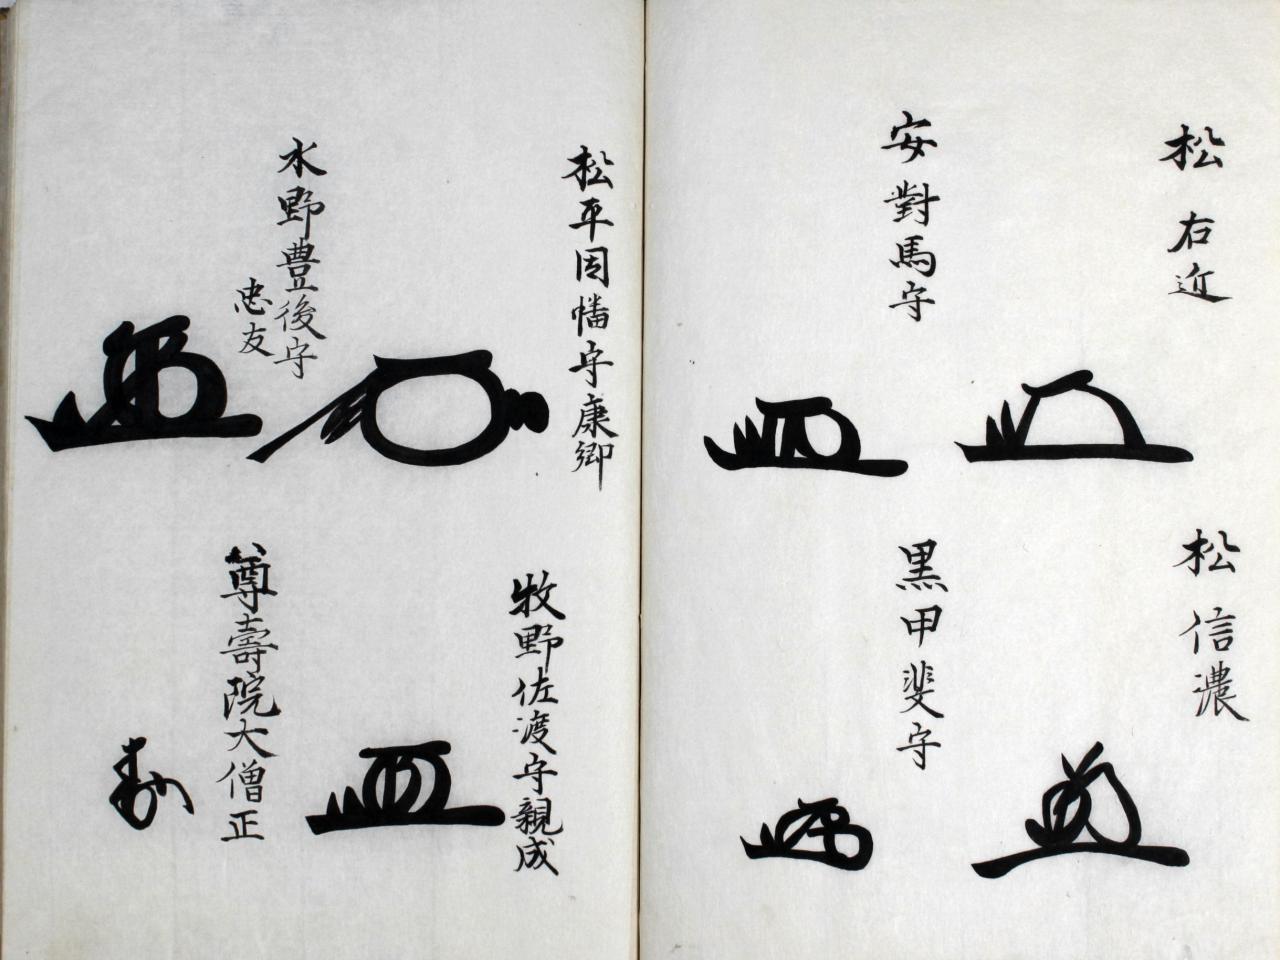 松右近
松信濃
安對馬守
黒甲斐守
松平因幡守康卿
牧野佐渡守親成
水野豊後守
忠友
尊壽院大僧正